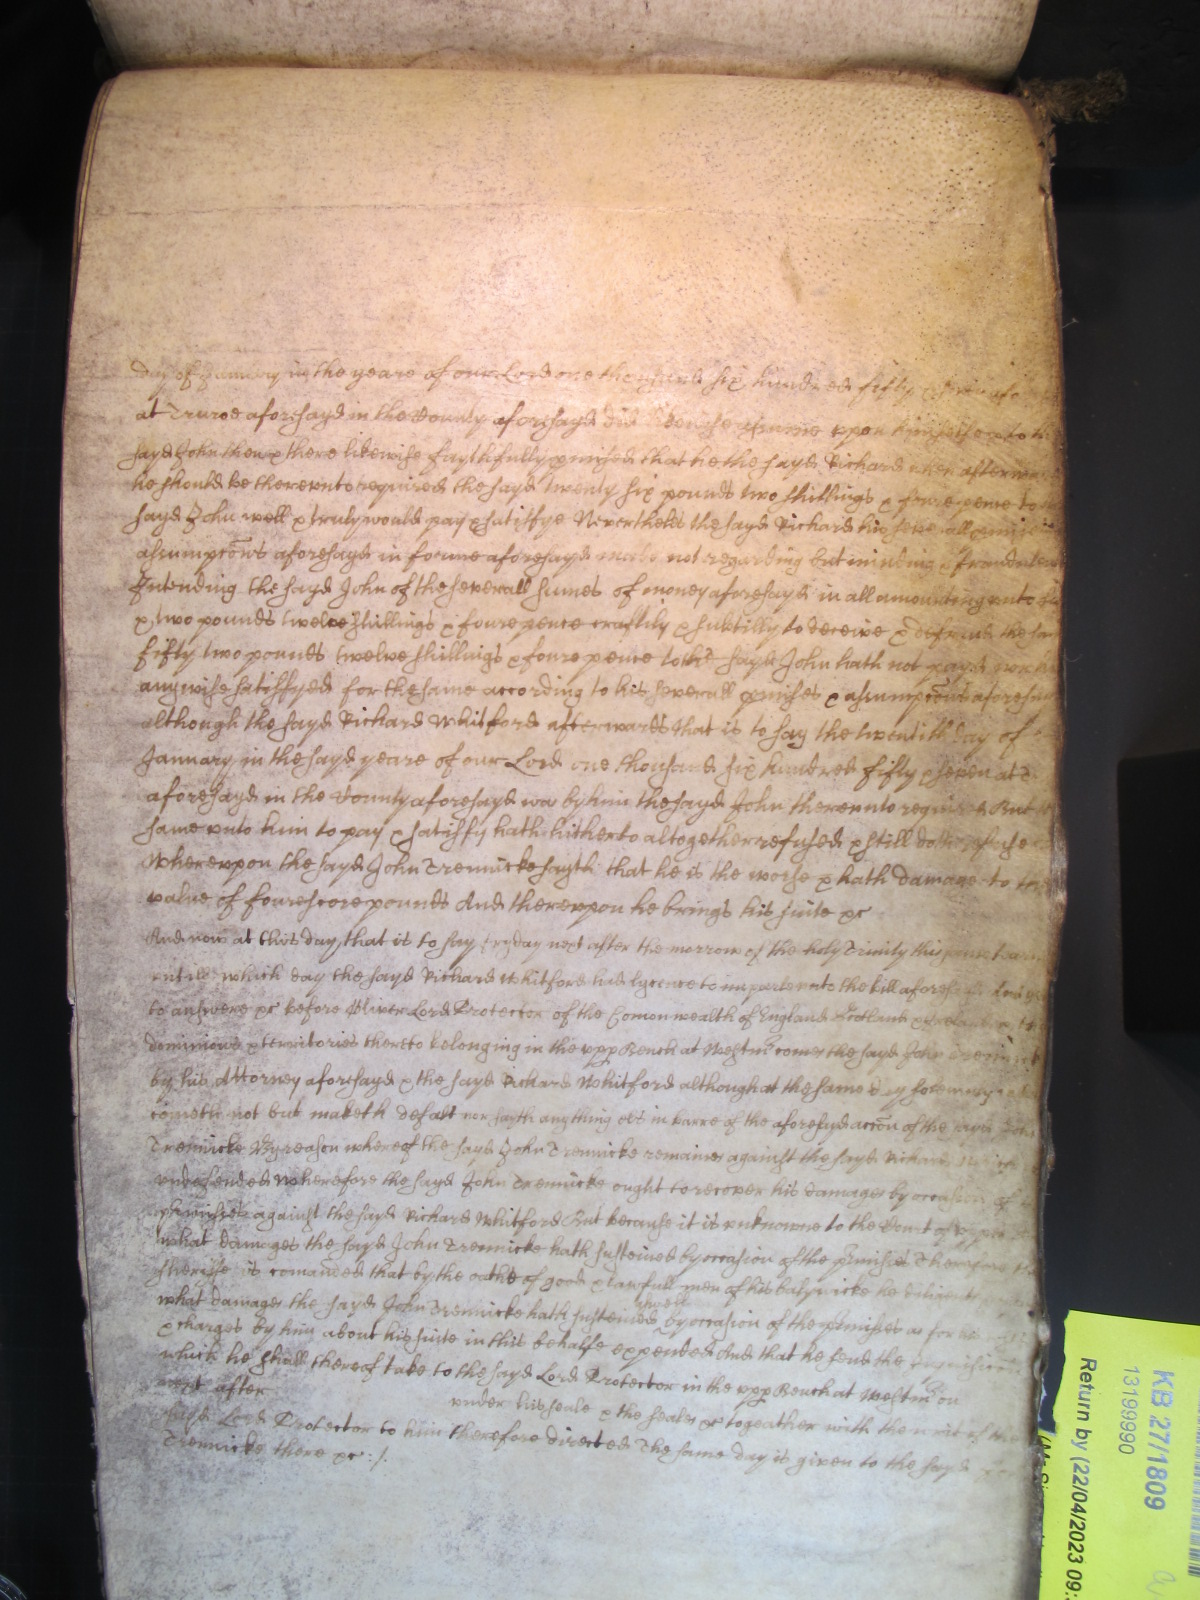 day of January in the yeare of our Lord one thousand six hundred fifty
at Truroe aforesayd in the County aforesayd did upon himselfe to
sayd John then & there likewise faythfully pmised that he the sayd Richard when
he should be thereunto required the sayd twenty six pounds two shillings & foure pence to
sayd John well & truly would pay & satisfye Neverthelesse the sayd Richard his sevrall
assumptcons aforesayd in forme aforesayd made not regarding but minding &
Intending the sayd John of the severall sumes of money aforesayd in all amounting unto
& two pounds twelve shillings & foure pence craftily & subtilly to deceive & defraud the
fifty two pounds twelve shillings & foure pence to the sayd John hath not payd
any wise satisfyed for the same according to his severall pmises & assumptcons aforesayd
although the sayd Richard Whitford afterwards that is to say the twentith day of
January in the sayd yeare of our Lord one thousand six hundred fifty & seven at
aforesayd in the County aforesayd was by him the sayd John thereunto required But
same unto him to pay & satisfy hath hitherto altogether refused & still doth refuse
Whereupon the sayd John Trennicke sayth that he is the worse & hath damage to the
value of fourescore pounds And thereupon he brings his suite &c
And now at this day that is to say fryday next after the morrow of the holy Trinity this
untill which day the sayd Richard Whitford had lycence to imparle unto the bill
to answere &c before Oliver Lord Protector of the Comonwealth of England Scotland & Ireland
dominions & territories thereto belonging in the uppr Bench at Westmr comes the sayd John
by his Attorney aforesayd & the sayd Richard Whitford although at the same day
cometh not but maketh defalt nor sayth anything els in barre of the aforesayd accon of the
Trennicke By reason whereof the sayd John Trennicke remaines against the sayd Richard
undefended Wherefore the sayd John Trennicke ought to recover his damages by occasion of
pmisses against the sayd Richard Whitford But because it is unknowne to the Court of
what damages the sayd John Trennicke hath susteined by occasion of the pmisses Therefore
Sheriffe is comanded that by the oathe of good & lawfull men of his balywicke he diligently
what damages the sayd John Trennicke hath susteined aswell by occasion of the pmisses as for
& charges by him about his suite in this behalfe expended And that he send the
which he shall thereof take to the sayd Lord Protector in the uppr Bench at Westmr on
next after under his seale & the seales &c togeather with the writ of the
sayd Lord Protector to him therefore directed The same day is given to the sayd
Trennicke there &c :/.
KB 27/1809
13199990
Return by (22/04/2023 09: